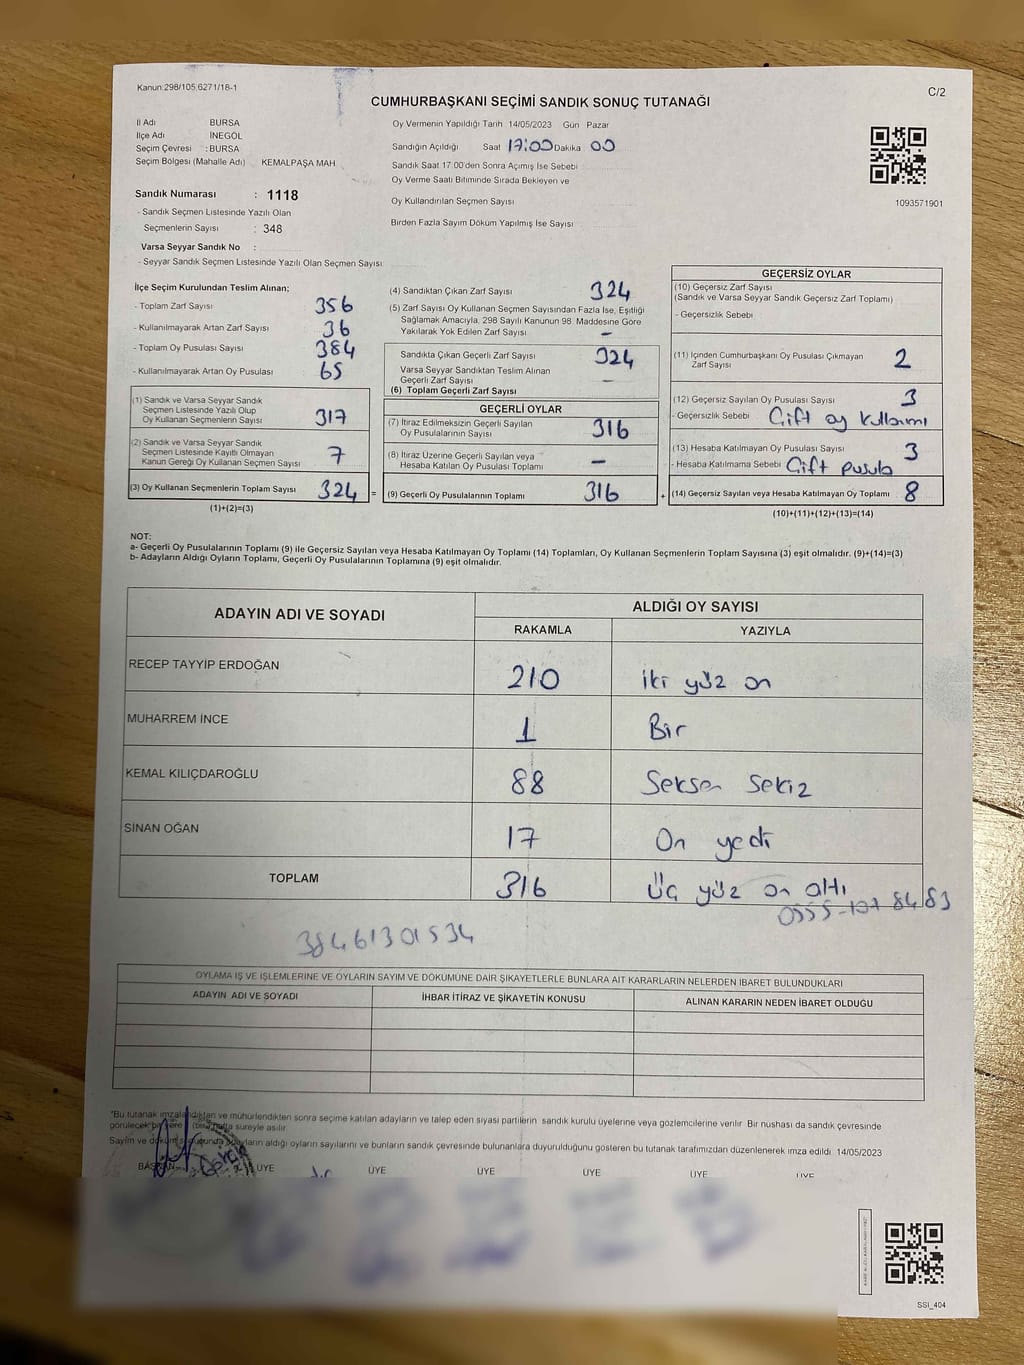 Kanun:298/105,6271/18-1
C/2
CUMHURBAŞKANI SEÇİMİ SANDIK SONUÇ TUTANAĞI
İl Adı BURSA
İlçe Adı İNEGÖL
Seçim Çevresi : BURSA
Seçim Bölgesi (Mahalle Adı) KEMALPAŞA MAH
Sandık Numarası : 1118
- Sandık Seçmen Listesinde Yazılı Olan
Seçmenlerin Sayısı : 348
Varsa Seyyar Sandık No :
- Seyyar Sandık Seçmen Listesinde Yazılı Olan Seçmen Sayısı
Oy Vermenin Yapıldığı Tarih 14/05/2023 Gün Pazar
Sandığın Açıldığı Saat 17:00 Dakika 00
Sandık Saat 17:00'den Sonra Açımış İse Sebebi
Oy Verme Saati Bitiminde Sırada Bekleyen ve
Oy Kullandırılan Seçmen Sayısı
Birden Fazla Sayım Döküm Yapılmış İse Sayısı
1093571901
İlçe Seçim Kurulundan Teslim Alınan;
- Toplam Zarf Sayısı 356
- Kullanılmayarak Artan Zarf Sayısı 36
- Toplam Oy Pusulası Sayısı 384
- Kullanılmayarak Artan Oy Pusulası 65
(1) Sandık ve Varsa Seyyar Sandık
Seçmen Listesinde Yazılı Olup
Oy Kullanan Seçmenlerin Sayısı 317
(2) Sandık ve Varsa Seyyar Sandık
Seçmen Listesinde Kayıtlı Olmayan
Kanun Gereği Oy Kullanan Seçmen Sayısı 7
(3) Oy Kullanan Seçmenlerin Toplam Sayısı 324 =
(1)+(2)=(3)
(4) Sandıktan Çıkan Zarf Sayısı 324
(5) Zarf Sayısı Oy Kullanan Seçmen Sayısından Fazla İse, Eşitliği
Sağlamak Amacıyla, 298 Sayılı Kanunun 98. Maddesine Göre
Yakılarak Yok Edilen Zarf Sayısı –
Sandıkta Çıkan Geçerli Zarf Sayısı 324
Varsa Seyyar Sandıktan Teslim Alınan
Geçerli Zarf Sayısı –
(6) Toplam Geçerli Zarf Sayısı
GEÇERLİ OYLAR
(7) İtiraz Edilmeksizin Geçerli Sayılan
Oy Pusulalarının Sayısı 316
(8) İtiraz Üzerine Geçerli Sayılan veya
Hesaba Katılan Oy Pusulası Toplamı –
(9) Geçerli Oy Pusulalarının Toplamı 316 +
GEÇERSİZ OYLAR
(10) Geçersiz Zarf Sayısı
(Sandık ve Varsa Seyyar Sandık Geçersiz Zarf Toplamı)
- Geçersizlik Sebebi
(11) İçinden Cumhurbaşkanı Oy Pusulası Çıkmayan
Zarf Sayısı 2
(12) Geçersiz Sayılan Oy Pusulası Sayısı 3
- Geçersizlik Sebebi Çift oy kullanımı
(13) Hesaba Katılmayan Oy Pusulası Sayısı 3
- Hesaba Katılmama Sebebi Çift pusula
(14) Geçersiz Sayılan veya Hesaba Katılmayan Oy Toplamı 8
(10)+(11)+(12)+(13)=(14)
NOT:
a- Geçerli Oy Pusulalarının Toplamı (9) ile Geçersiz Sayılan veya Hesaba Katılmayan Oy Toplamı (14) Toplamları, Oy Kullanan Seçmenlerin Toplam Sayısına (3) eşit olmalıdır. (9)+(14)=(3)
b- Adayların Aldığı Oyların Toplamı, Geçerli Oy Pusulalarının Toplamına (9) eşit olmalıdır.
ADAYIN ADI VE SOYADI ALDIĞI OY SAYISI
RAKAMLA YAZIYLA
RECEP TAYYİP ERDOĞAN 210 iki yüz on
MUHARREM İNCE 1 Bir
KEMAL KILIÇDAROĞLU 88 Seksen Sekiz
SİNAN OĞAN 17 On yedi
TOPLAM 316 Üç yüz on altı
38461301534
OYLAMA İŞ VE İŞLEMLERİNE VE OYLARIN SAYIM VE DÖKÜMÜNE DAİR ŞİKAYETLERLE BUNLARA AİT KARARLARIN NELERDEN İBARET BULUNDUKLARI
ADAYIN ADI VE SOYADI İHBAR İTİRAZ VE ŞİKAYETİN KONUSU ALINAN KARARIN NEDEN İBARET OLDUĞU
*Bu tutanak imzalandıktan ve mühürlendikten sonra seçime katılan adayların ve talep eden siyasi partilerin sandık kurulu üyelerine veya gözlemcilerine verilir. Bir nüshası da sandık çevresinde
görülecek bir yere bir hafta süreyle asılır
Sayım ve döküm sonucunda adayların aldığı oyların sayılarını ve bunların sandık çevresinde bulunanlara duyurulduğunu gösteren bu tutanak tarafımızdan düzenlenerek imza edildi. 14/05/2023
BAŞKAN ÜYE ÜYE ÜYE ÜYE ÜYE ÜYE
SSI_404